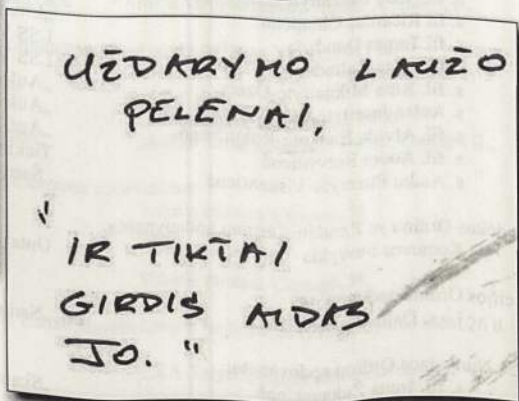 UŽDARYMO LAUŽO
PELENAI,
"
IR TIKTAI
GIRDIS AIDAS
JO."